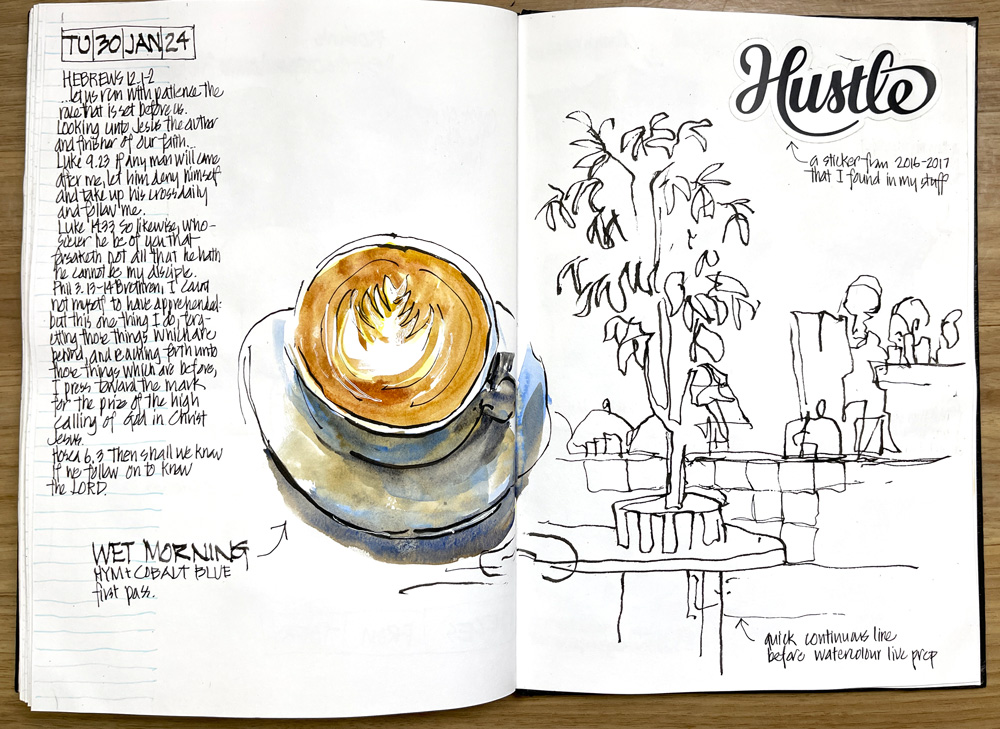 TU 30 JAN 24
HEBREWS 12.1-2
...let us run with patience the
race that is set before us.
Looking unto Jesus the author
and finisher of our faith...
Luke 9.23 If any man will come
after me, let him deny himself
and take up his cross daily
and follow me.
Luke 14.33 So likewise, who-
soever he be of you that
forsaketh not all that he hath
he cannot be my disciple.
Phil 3.13-14 Brethren, I count
not myself to have apprehended:
but this one thing I do, forg-
etting those things which are
behind, and reaching forth unto
those things which are before,
I press toward the mark
for the prize of the high
calling of God in Christ
Jesus.
Hosea 6.3 Then shall we know
if we follow on to know
the LORD.
WET MORNING
HYM + COBALT BLUE
first pass.
Hustle
a sticker from 2016-2017
that I found in my stuff
quick continuous line
before watercolour live prep